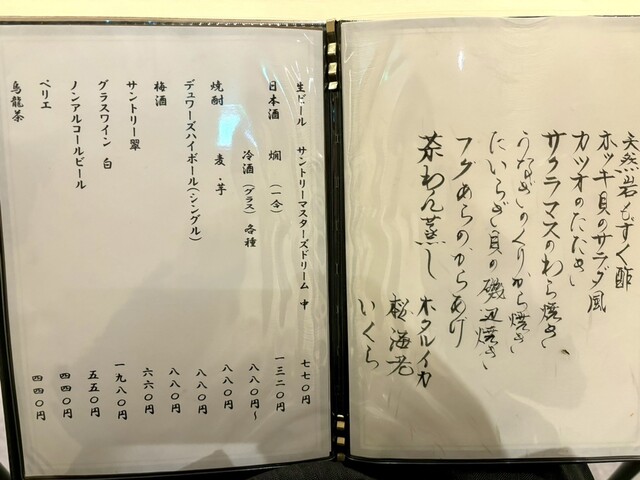 天然岩もずく酢
ホッキ貝のサラダ風
カツオのたたき
サクラマスのわら焼き
うなぎのくりから焼き
たいらぎ貝の磯辺焼き
フグあらのからあげ
茶わん蒸し
ホタルイカ
桜海老
いくら
生ビール サントリーマスターズドリーム 中 七七〇円
日本酒 燗 (一合) 一三二〇円
冷酒 (グラス) 各種 八八〇円〜
焼酎 麦・芋 八八〇円
デュワーズハイボール(シングル) 八八〇円
梅酒 八八〇円
サントリー翠 六六〇円
グラスワイン 白 一九八〇円
ノンアルコールビール 五五〇円
ペリエ 四四〇円
烏龍茶 四四〇円